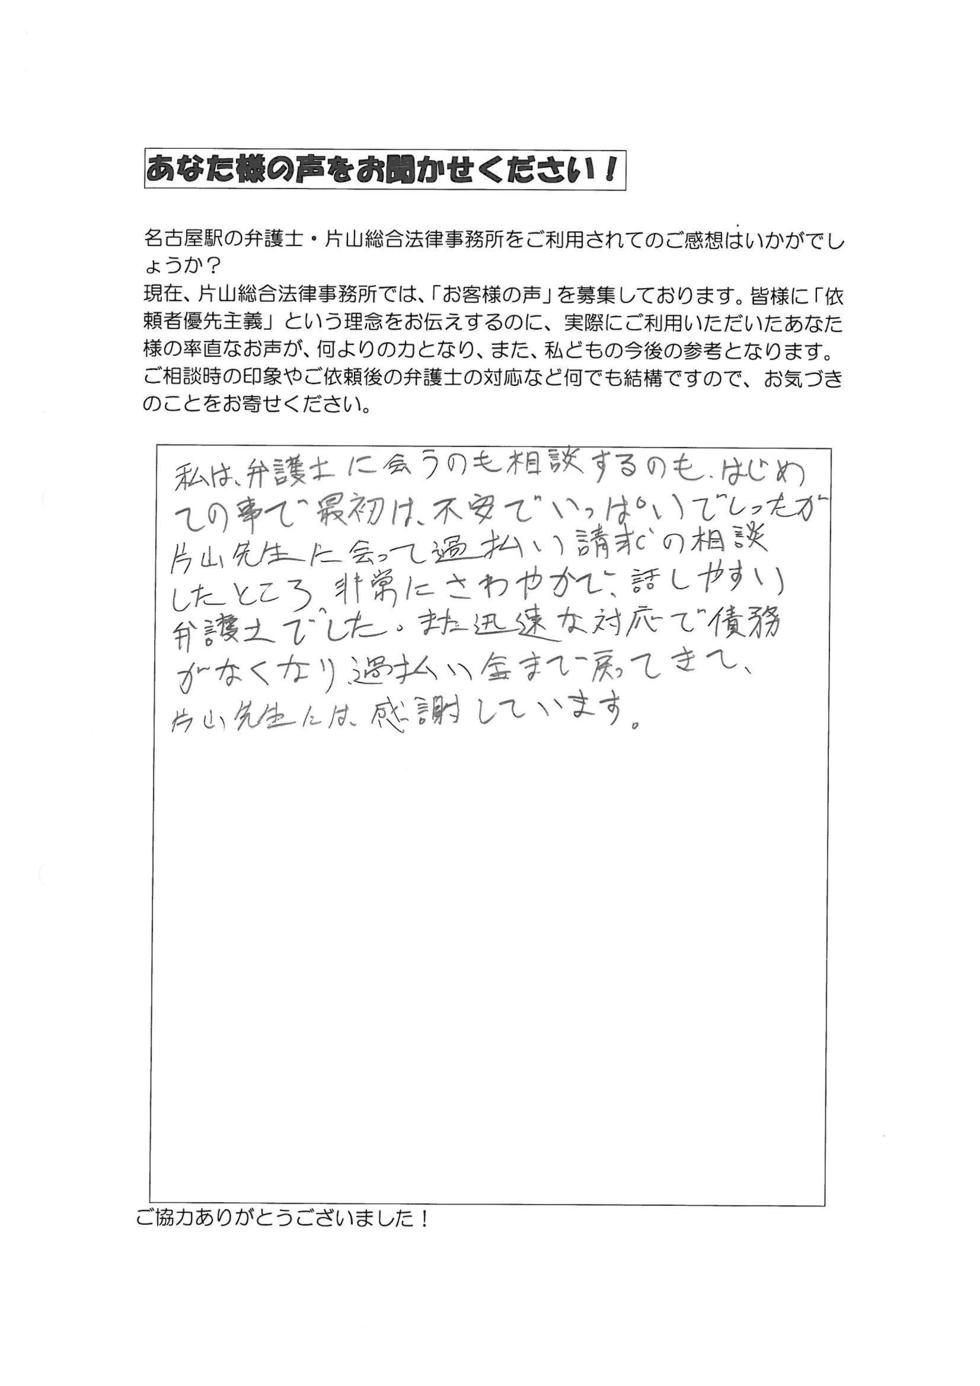 あなた様の声をお聞かせください！
名古屋駅の弁護士・片山総合法律事務所をご利用されてのご感想はいかがでし
ょうか？
現在、片山総合法律事務所では、「お客様の声」を募集しております。皆様に「依
頼者優先主義」という理念をお伝えするのに、実際にご利用いただいたあなた
様の率直なお声が、何よりの力となり、また、私どもの今後の参考となります。
ご相談時の印象やご依頼後の弁護士の対応など何でも結構ですので、お気づき
のことをお寄せください。
私は、弁護士に会うのも相談するのも、はじめ
ての事で最初は、不安でいっぱいでしったが
片山先生に会って過払い請求の相談
したところ、非常にさわやかで、話しやすい
弁護士でした。また迅速な対応で債務
がなくなり過払い金まで戻ってきて、
片山先生には、感謝しています。
ご協力ありがとうございました！